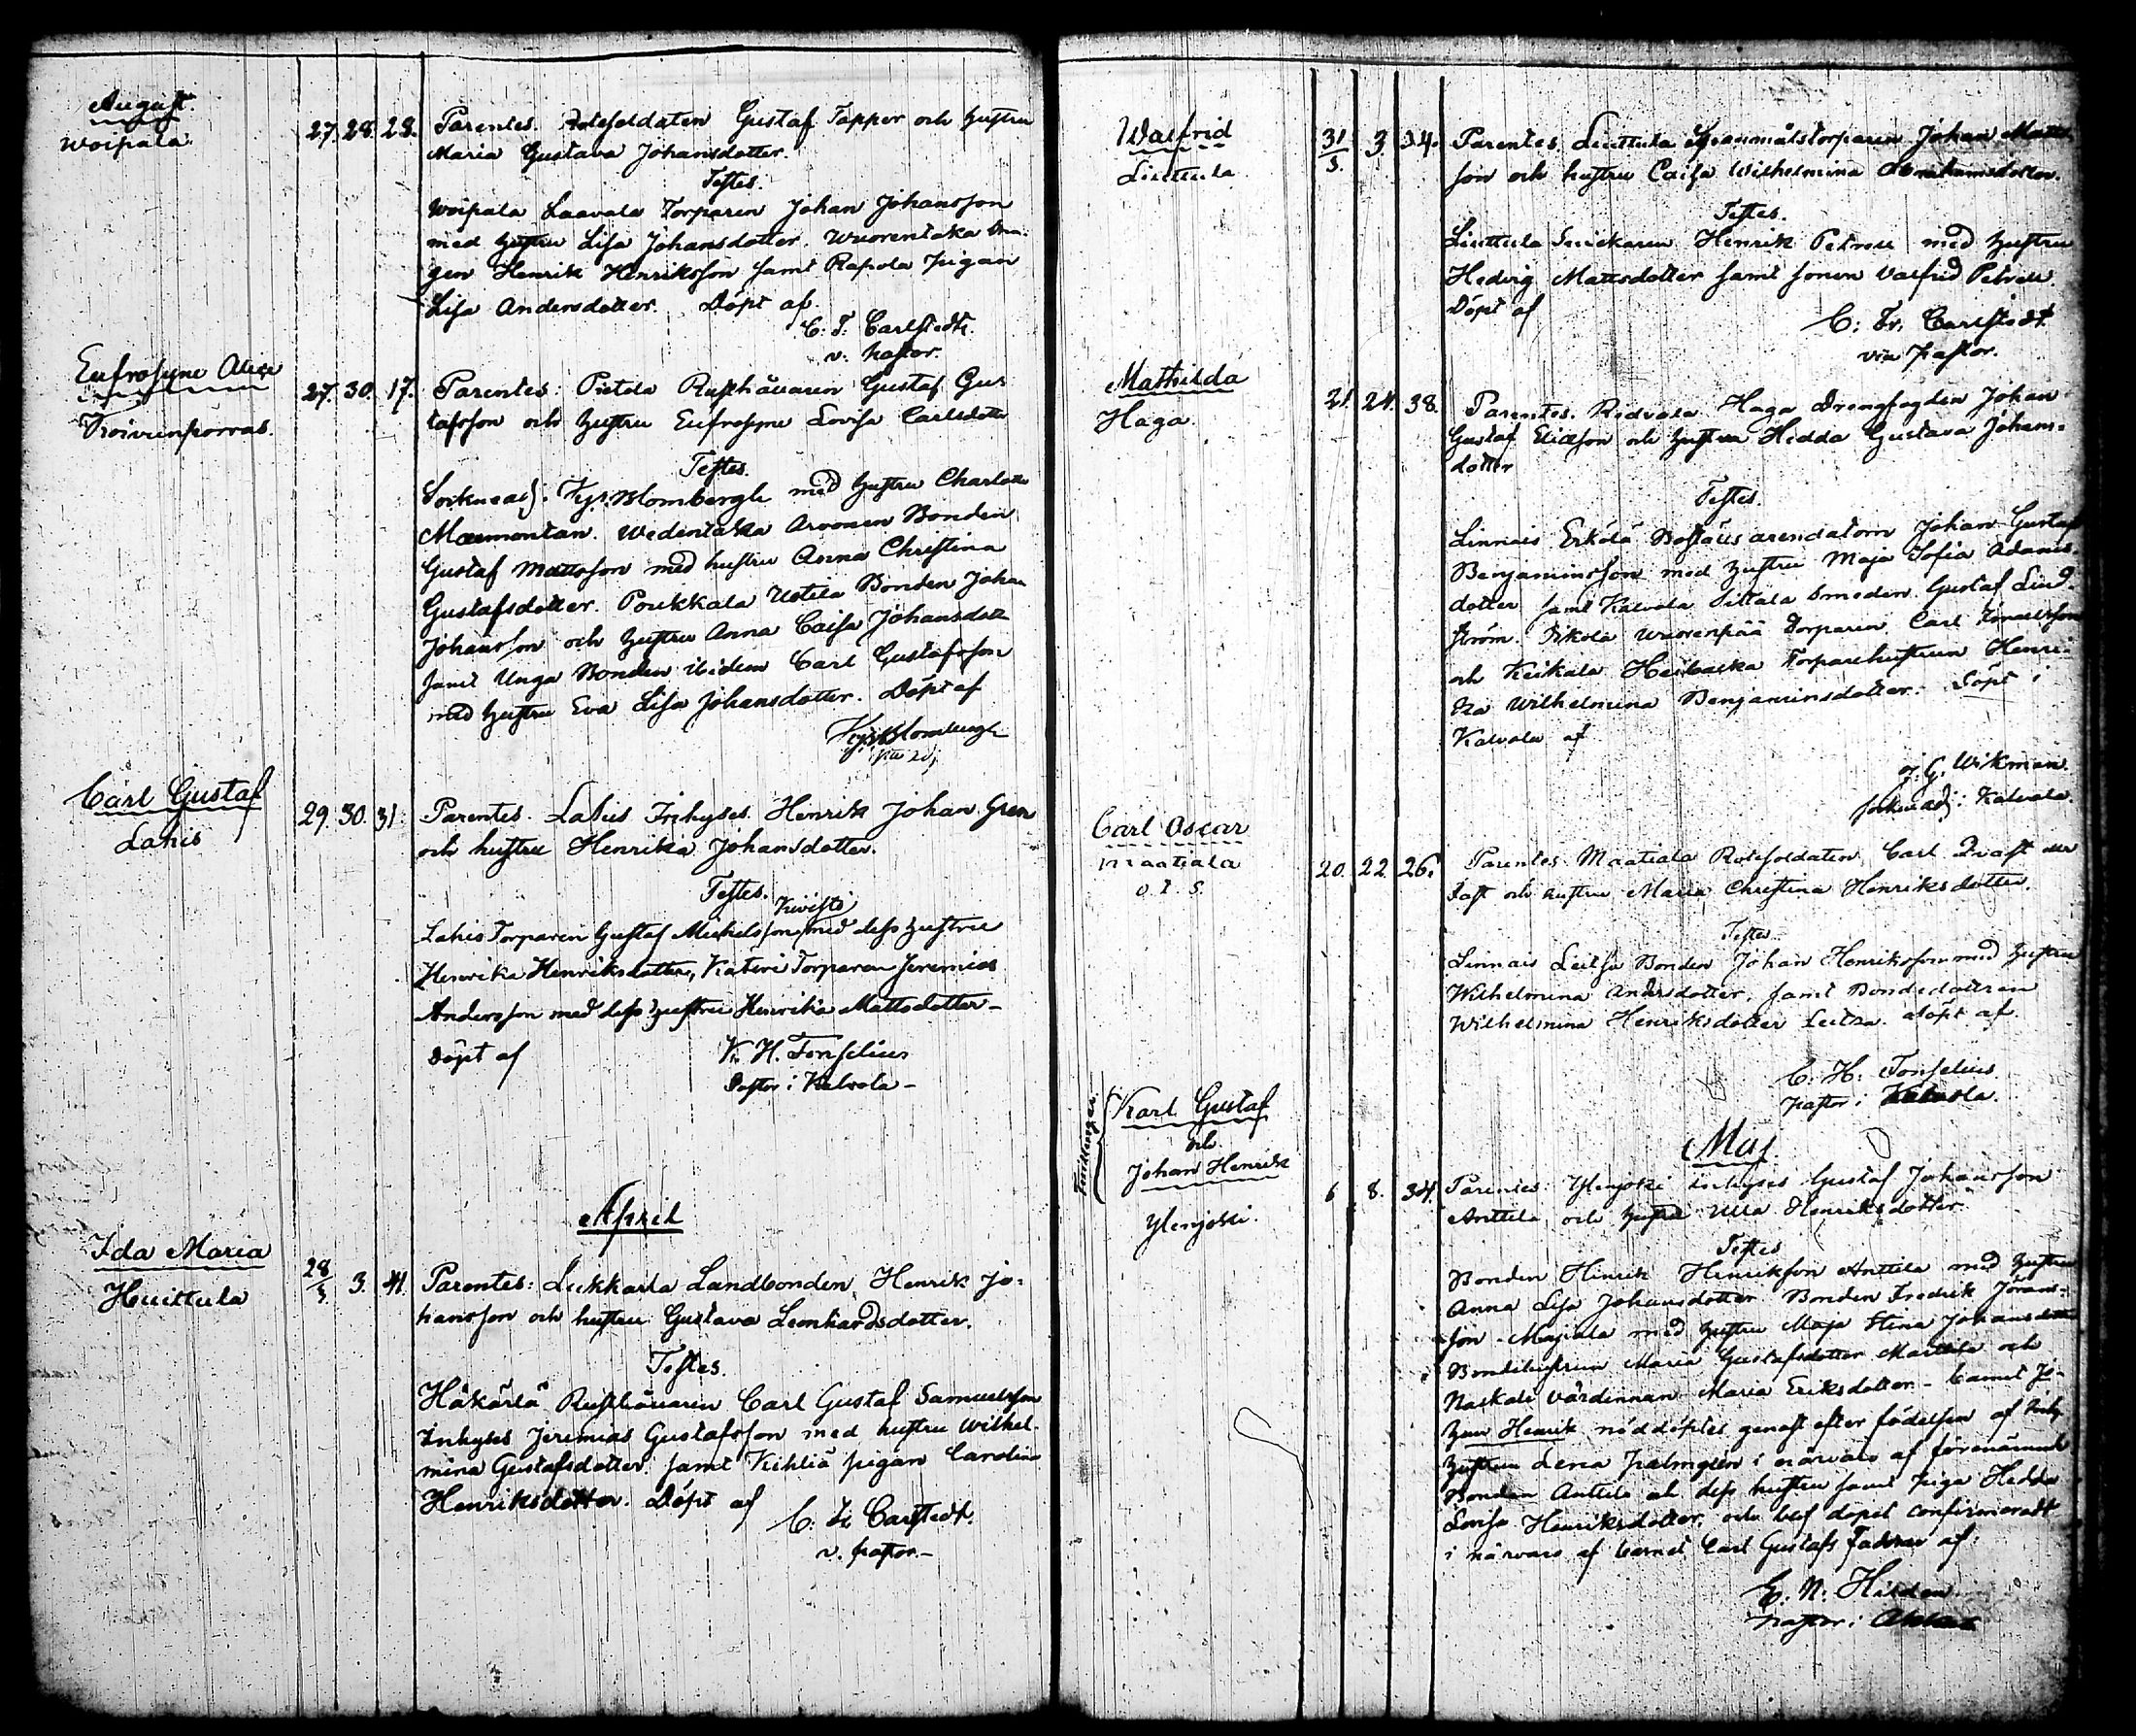 August
Woipala
27. 28. 28.
Parentes. Rotesoldaten Gustaf Tapper och hustru
Maria Gustava Johansdotter.
Testes.
Woipala Laavala Torparen Johan Johansson
med hustru Lisa Johansdotter. Wuorentaka
Henrik Henriksson samt Rapola pigan
Lisa Andersdotter. Döpt af
C: F: Carlstedt.
v. pastor.
Eufrosyne Alexa
Koivunporras.
27. 30. 17.
Parentes: Rusthållaren Gustaf Gus
tafsson och hustru Eufrosyne Lovisa Carlsdotter
Testes.
Blombergh med hustru Charlotta
Wedentaka Arvonen Bonden
Gustaf Mattsson med hustru Anna Christina
Gustafsdotter. Poukkala Uotila Bonden Johan
Johansson och hustru Anna Caisa Johansdott
samt Unga Bonden ibidem Carl Gustafsson
med hustru Eva Lisa Johansdotter. Döpt af
Blombergh
Carl Gustaf
Lahis
29. 30. 31.
Parentes. Lahis Inhyses Henrik Johan Gren
och hustru Henrika Johansdotter.
Testes.
Kivistö
Lahis Torparen Gustaf Michelsson med dess hustru
Henrika Henriksdotter, Kateri Torparen Jeremias
Andersson med dess hustru Henrika Mattsdotter –
Döpt af K. H. Fonselius
Pastor i Kalvola –
April
Ida Maria
Huittula
28/3. 3. 41.
Parentes: Lukkarla Landbonden Henrik Jo-
hansson och hustru Gustava Leonhardsdotter.
Testes.
Häkärlä Rusthållaren Carl Gustaf Samuelsson
Inhyses Jeremias Gustafsson med hustru Wilhel-
mina Gustafsdotter. samt Kihliä pigan Carolina
Henriksdotter. Döpt af
C: Fr: Carlstedt.
v. pastor. –
Walfrid
Liuttula
31/3. 3. 34.
Parentes. Liuttula Johan Matts
son och hustru Caisa Wilhelmina Abrahamsdotter.
Testes.
Liuttula Snickaren Henrik Petrell med hustru
Hedvig Mattsdotter samt sonen Valfrid Petrell.
Döpt af
C: Fr: Carlstedt
vice pastor.
Mathilda
Haga.
21. 24. 38.
Parentes. Ridvala Haga Drengfogden Johan
Gustaf Ericsson och hustru Hedda Gustava Johans-
dotter
Testes.
Linnais Erkölä Boställs arendatorn Johan Gustaf
Benjaminsson med hustru Maja Sofia Adams-
dotter samt Kalvola Sittala Smeden Gustaf Lind-
ström. Wuorenpää Torparen Carl
och Keikala Torparehustrun Henri-
ka Wilhelmina Benjaminsdotter. Döpt i
Kalvola af
J. G. Wikman.
sockneadj: i Kalvola.
Carl Oscar
Maatiala
o. I. S.
20. 22. 26.
Parentes. Maatiala Rotesoldaten Carl eller
och hustru Maria Christina Henriksdotter.
Testes
Linnais Bonden Johan Henriksson med hustru
Wilhelmina Andersdotter, samt Bondedottren
Wilhelmina Henriksdotter döpt af
C. H: Fonselius
pastor i Kalvola.
Maj.
Tvillingar
Karl Gustaf
och
Johan Henrik
Ylenjoki.
6 8. 34.
Parentes: Ylenjoki Inhyses Gustaf Johansson
Anttila och hustru Ulla Henriksdotter
Testes
Bonden Hinrik Henriksson Anttila med hustru
Anna Lisa Johansdotter Bonden Fredrik Jörans-
son med hustru Maja Stina Johansdotter
Bondehustrun Maria Gustafsdotter Marttila och
Naskali Värdinnan Maria Eriksdotter – barnet Jo-
han Henrik nöddöptes genast efter födelsen af
hustrun Lena Palmgren i närvaro af förenämnde
Bonden Anttila och dess hustru samt piga Hedda
Lovisa Henriksdotter, och blef döpet confirmeradt
i närvaro af barnet Carl Gustafs faddrar af
E. N. Hildén
pastor i Akkas